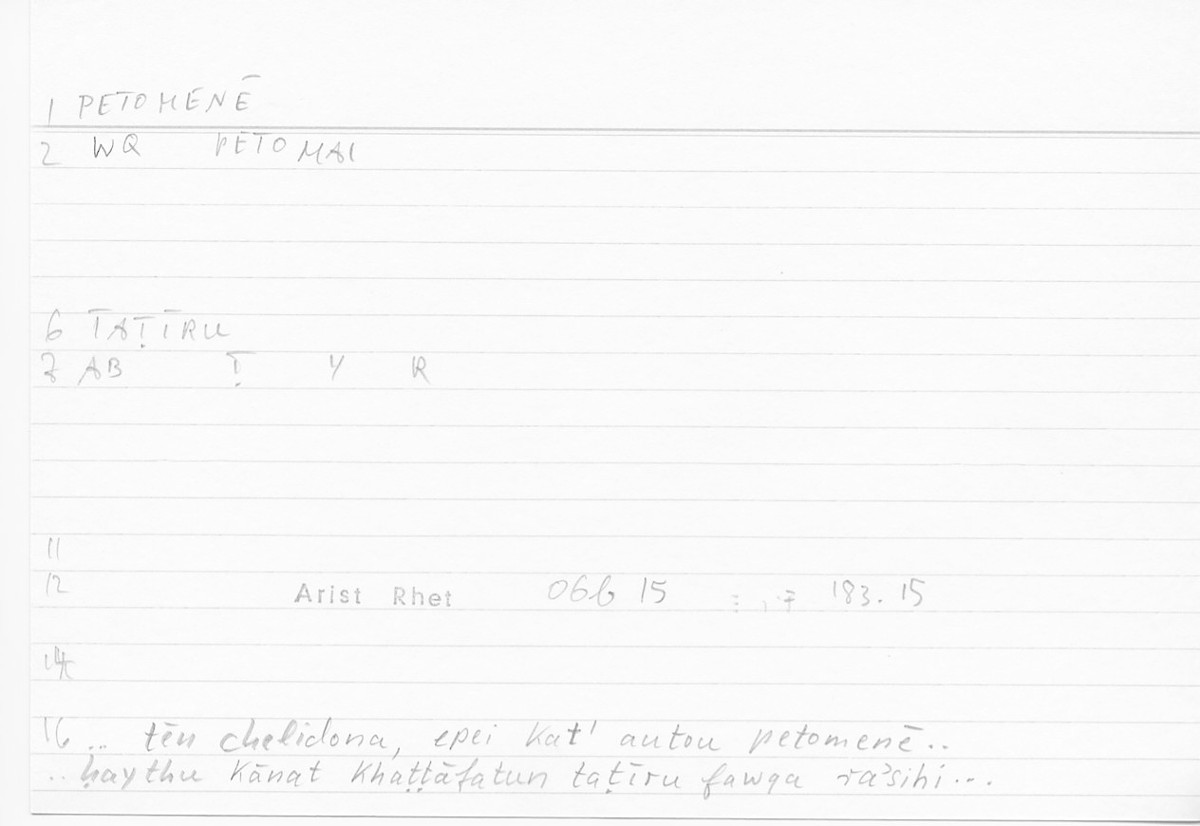 1 PETOMENĒ
2 WQ PETOMAI
6 TAṬĪRU
7 AB Ṭ Y R
11
12 Arist Rhet 06b 15 183.15
14
16 .. tēn chelidona, epei kat' autou petomenē..
..ḥaythu kānat khaṭṭāfatun taṭīru fawqa ra'sihi...